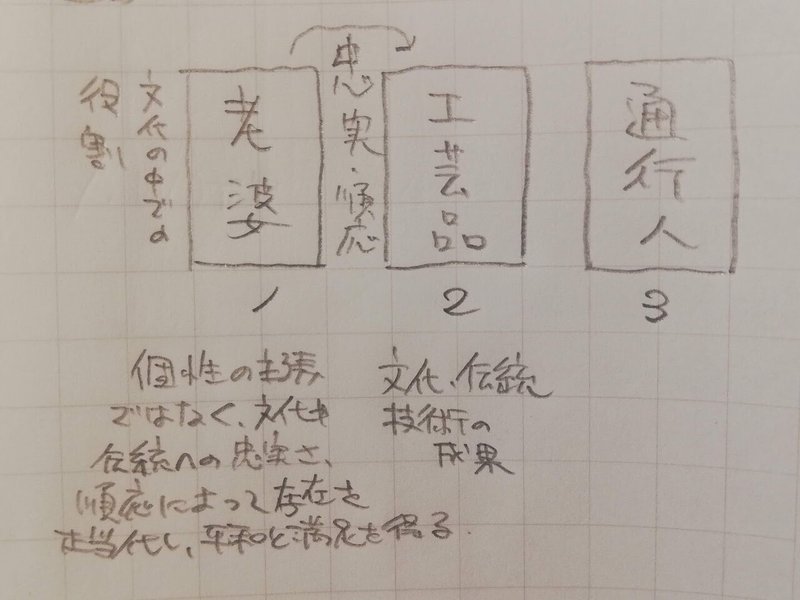 文化の中での
役割
老婆
忠実・順応
工芸品
通行人
1
2
3
個性の主張
ではなく、文化や
伝統への忠実さ、
順応によって存在を
正当化し、平和と満足を得る.
文化、伝統
技術の
成果